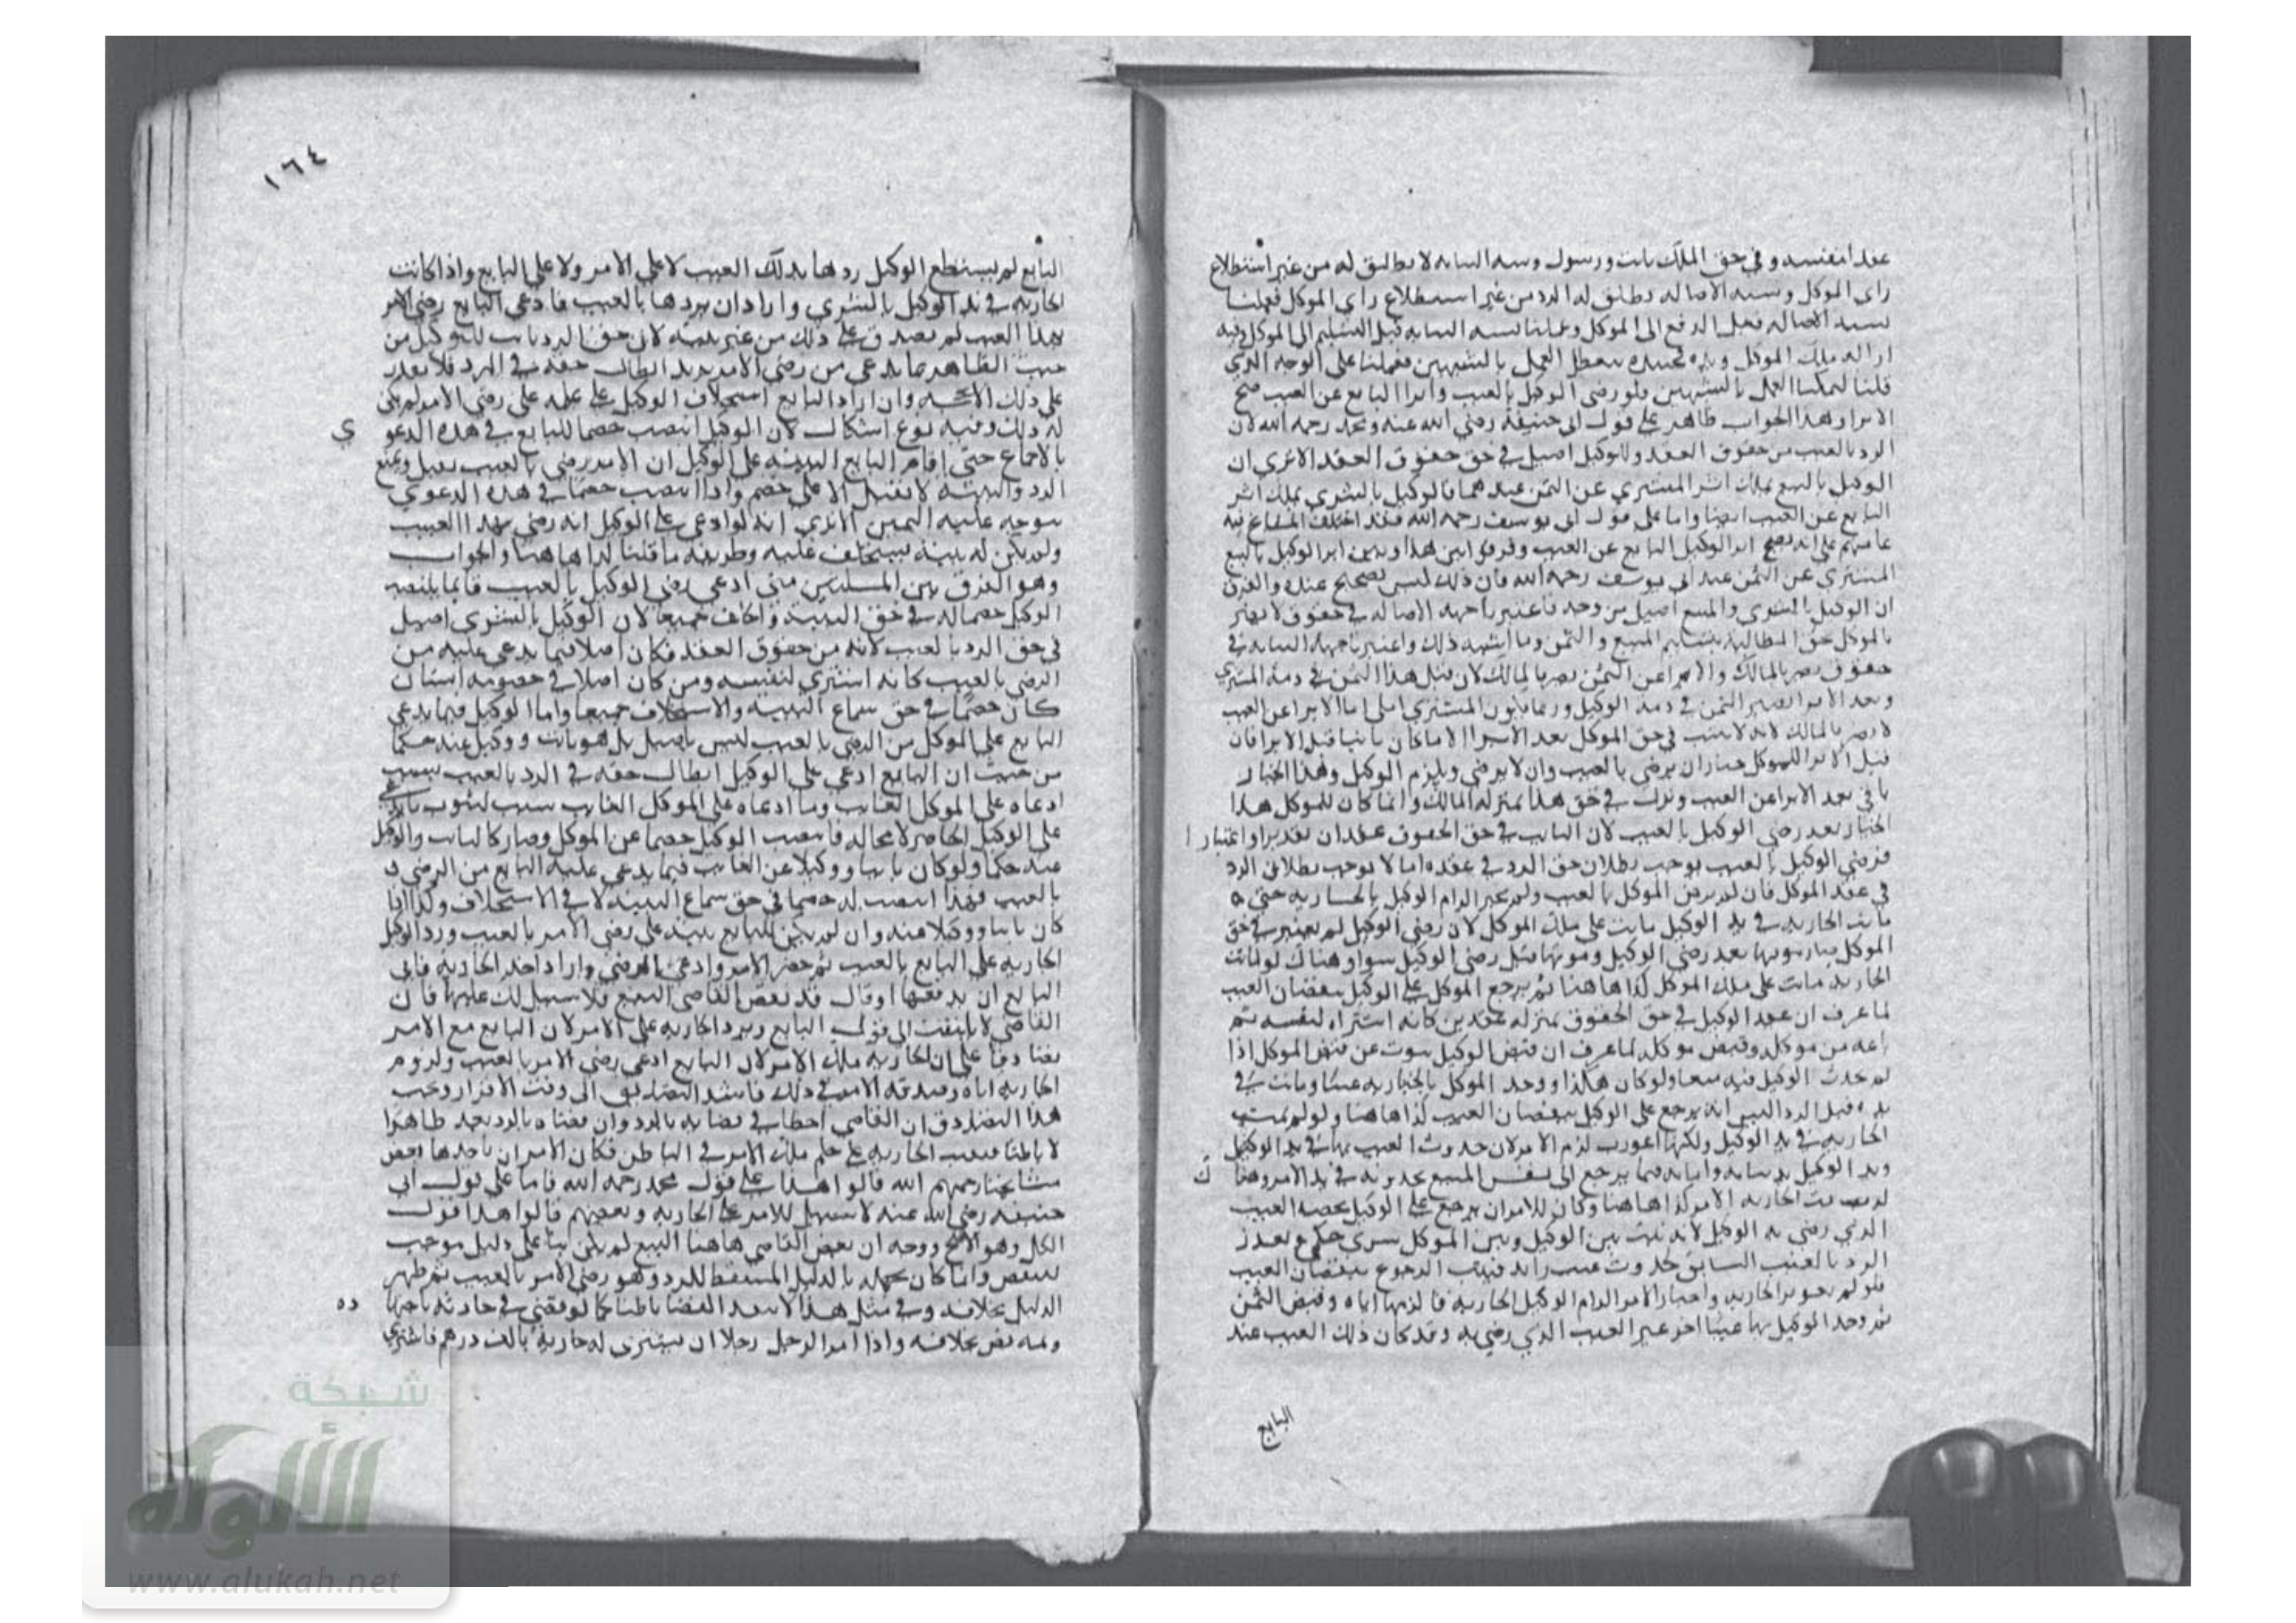 عقدا لنفسه وفي حق الملك نائب ورسول وشبه النيابة لا يطلق له من غير استطلاع
راى الموكل وشبه الاصاله يطلق له الرد من غير استطلاع راى الموكل فعملنا
بشبه الاصاله قبل الدفع الى الموكل وعملنا بشبه النيابه قبل التسليم الى الموكل وفيه
ازاله ملك الموكل ويده تعطل العمل بالشبهين فعملنا على الوجه الذي
قلنا ليمكننا العمل بالشبهين ولو رضى الوكيل بالعيب وابرا البايع عن العيب صح
الابرا وهذا الجواب ظاهر على قول ابى حنيفة رضي الله عنه ومحمد رحمه الله لان
الرد بالعيب من حقوق العقد والوكيل اصيل في حق حقوق العقد الا ترى ان
الوكيل بالبيع يملك ابرا المشتري عن الثمن عندهما فالوكيل بالشرى يملك ابرا
البايع عن العيب ايضا واما على قول ابى يوسف رحمه الله فقد اختلف المشايخ فيه
عامتهم على انه يصح ابرا الوكيل البايع عن العيب وفرقوا بين هذا وبين ابرا الوكيل بالبيع
المشتري عن الثمن عند ابى يوسف رحمه الله فان ذلك ليس بصحيح عنده والفرق
ان الوكيل بالشرى والبيع اصيل من وجه فاعتبرنا جهة الاصاله في حقوق لا يضر
بالموكل حق المطالبة بتسليم المبيع والثمن وما اشبه ذلك واعتبرنا جهة النيابه في
حقوق يضر بالمالك والابرا عن الثمن يضر بالمالك لان قبل هذا الثمن في ذمة المشتري
وبعد الابرا يصير الثمن في ذمه الوكيل وربما يكون المشتري املى اما الابرا عن العيب
لا يضر بالمالك لانه لا يثبت في حق الموكل بعد الابرا الا ما كان ثابتا قبل الابرا فان
قبل الابرا للموكل خيار ان يرضى بالعيب وان لا يرضى ويلزم الوكيل وهذا الخيار
باقي بعد الابرا عن العيب ونزل في حق هذا بمنزله المالك وانما كان للموكل هذا
الخيار بعد رضى الوكيل بالعيب لان الثابت في حق الحقوق عقدان تقديرا واعتبارا
فرضي الوكيل بالعيب يوجب بطلان حق الرد في عقده اما لا يوجب بطلان الرد
في عقد الموكل فان لم يرض الموكل بالعيب ولم يختر الزام الوكيل بالجاريه حتى
ماتت الجاريه في يد الوكيل ماتت على ملك الموكل لان رضى الوكيل لم يعتبر في حق
الموكل فصار موتها بعد رضى الوكيل وموتها قبل رضى الوكيل سوا وهناك لو ماتت
الجاريه ماتت على ملك الموكل كذا هاهنا ثم يرجع الموكل على الوكيل بنقصان العيب
لما عرف ان عقد الوكيل في حق الحقوق بمنزله عقدين كانه اشتراه لنفسه ثم
باعه من موكله وقبض موكله لما عرف ان قبض الوكيل ينوب عن قبض الموكل اذا
لم يحدث الوكيل فيه منعا ولو كان هكذا ووجد الموكل بالجاريه عيبا وماتت في
يده قبل الرد اليس انه يرجع على الوكيل بنقصان العيب كذا هاهنا ولو لم تمت
الجاريه في يد الوكيل ولكنها اعورت لزم الامر لان حدوث العيب بها في يد الوكيل
ويد الوكيل يد نيابه وامانه فيما يرجع الى نفس المبيع كحدوثه في يد الامر وهناك
لو تعيبت الجاريه الامر كذا هاهنا وكان للامر ان يرجع على الوكيل بحصه العيب
الذي رضى به الوكيل لانه يثبت بين الوكيل وبين الموكل شرى حكمي وتعذر
الرد بالعيب السابق لحدوث عيب زايد فيثبت الرجوع بنقصان العيب
فلو لم تعور الجاريه واختار الامر الزام الوكيل الجاريه فالزمها اياه وقبض الثمن
ثم وجد الوكيل بها عيبا اخر غير العيب الذي رضي به وقد كان ذلك العيب عند
البايع
١٦٤
البايع لم يستطع الوكيل ردها بذلك العيب لا على الامر ولا على البايع واذا كانت
الجاريه في يد الوكيل بالشرى وارادان يردها بالعيب فادعى البايع رضى الامر
بهذا العيب لم يصدق على ذلك من غير بينه لان حق الرد ثابت للوكيل من
حيث الظاهر فما يدعى من رضى الامر يريد ابطال حقه في الرد فلا يقدر
على ذلك الا بحجه وان اراد البايع استحلاف الوكيل على علمه على رضى الامر لم يكن
له ذلك وفيه نوع اشكال لان الوكيل انتصب خصما للبايع في هذه الدعوى
بالاجماع حتى اقام البايع البينه على الوكيل ان الامر رضى بالعيب يقبل ويمتنع
الرد والبينه لا تقبل الا على خصم واذا انتصب خصما في هذه الدعوى
يتوجه عليه اليمين الا ترى انه لو ادعى على الوكيل انه رضى بهذا العيب
ولم يكن له بينة يستحلف عليه وطريقه ما قلنا كذا هاهنا والجواب
وهو الفرق بين المسلتين متى ادعى رضى الوكيل بالعيب فانما انتصب
الوكيل خصما له في حق البينة والحلف جميعا لان الوكيل بالشرى اصيل
في حق الرد بالعيب لانه من حقوق العقد فكان اصلا فيما يدعى عليه من
الرضى بالعيب كانه اشترى لنفسه ومن كان اصلا في خصومه انسان
كان خصما في حق سماع البينه والاستحلاف جميعا واما الوكيل فيما يدعى
البايع على الموكل من الرضى بالعيب ليس باصيل بل هو نائب ووكيل عنه حكما
من حيث ان البايع ادعى على الوكيل ابطال حقه في الرد بالعيب بسبب
ادعاه على الموكل الغايب وما ادعاه على الموكل الغايب سبب لثبوت ما يدعى
على الوكيل الحاضر لا محاله فانتصب الوكيل خصما عن الموكل وصار كالنايب والوكيل
عنه حكما ولو كان نايبا ووكيلا عن الغايب فيما يدعى عليه البايع من الرضى
بالعيب فهذا انتصب له خصما في حق سماع البينه لا في الاستحلاف وكذا اذا
كان نايبا ووكيلا عنه وان لم يكن للبايع بينة على رضى الامر بالعيب ورد الوكيل
الجاريه على البايع بالعيب ثم حضر الامر وادعى الرضى واراد اخذ الجاريه فابى
البايع ان يدفعها وقال قد نقض القاضي البيع فلا سبيل لك عليها فان
القاضي لا يلتفت الى قول البايع ويرد الجاريه على الامر لان البايع مع الامر
تصادقا على ان الجاريه ملك الامر لان البايع ادعى رضى الامر بالعيب ولزوم
الجاريه اياه وصدقه الامر في ذلك فاستند التصادق الى وقت الاقرار وثبت
هذا التصادق ان القاضي اخطا في قضايه بالرد وان قضاه بالرد نفذ ظاهرا
لا باطنا فبقيت الجاريه على حكم ملك الامر في الباطن فكان للامر ان ياخذها بعض
مشايخنا رحمهم الله قالوا هذا على قول محمد رحمه الله فاما على قول ابى
حنيفه رضي الله عنه لا سبيل للامر على الجاريه وبعضهم قالوا هذا قول
الكل وهو الاصح ووجه ان نقض القاضي هاهنا البيع لم يكن بنا على دليل موجب
للنقض وانما كان لجهله بالدليل المسقط للرد وهو رضى الامر بالعيب ثم ظهر
الدليل بخلافه وفي مثل هذا لا ينفذ القضا باطنا كما لو قضى في حادثه باجتهاده
وثمه نص بخلافه واذا امر الرجل رجلا ان يشترى له جاريه بالف درهم فاشترى
شبكة
الألوكة
www.alukah.net